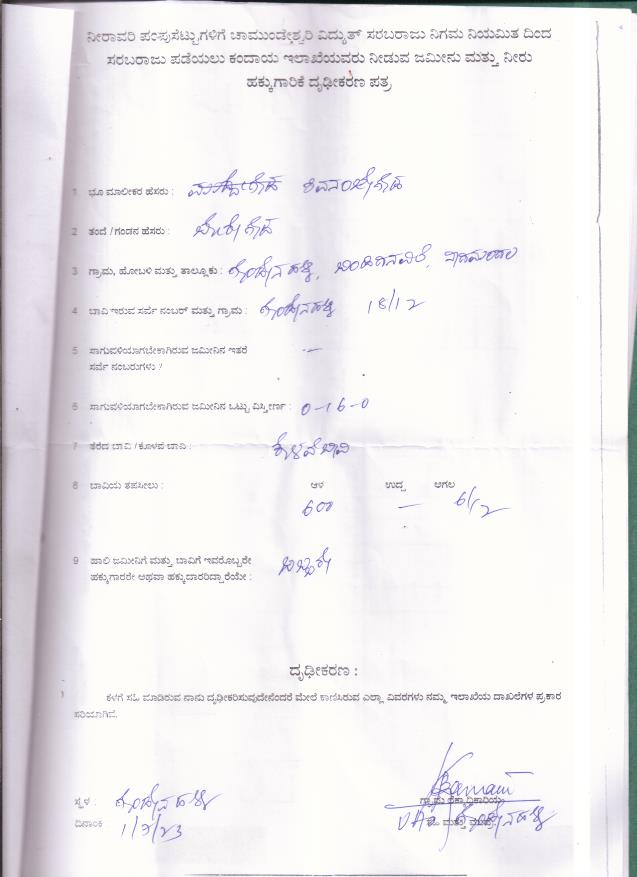 ನೀರಾವರಿ ಪಂಪುಸೆಟ್ಟುಗಳಿಗೆ ಚಾಮುಂಡೇಶ್ವರಿ ವಿದ್ಯುತ್ ಸರಬರಾಜು ನಿಗಮ ನಿಯಮಿತ ದಿಂದ
ಸರಬರಾಜು ಪಡೆಯಲು ಕಂದಾಯ ಇಲಾಖೆಯವರು ನೀಡುವ ಜಮೀನು ಮತ್ತು ನೀರು
ಹಕ್ಕುಗಾರಿಕೆ ದೃಢೀಕರಣ ಪತ್ರ
1 ಭೂ ಮಾಲೀಕರ ಹೆಸರು : ಶಿವನಂಜೇಗೌಡ
2 ತಂದೆ / ಗಂಡನ ಹೆಸರು : ಬೋರೇಗೌಡ
3 ಗ್ರಾಮ, ಹೋಬಳಿ ಮತ್ತು ತಾಲ್ಲೂಕು : ಬಿಂಡಿಗನವಿಲೆ, ನಾಗಮಂಗಲ
4 ಬಾವಿ ಇರುವ ಸರ್ವೆ ನಂಬರ್ ಮತ್ತು ಗ್ರಾಮ : 18/12
5 ಸಾಗುವಳಿಯಾಗಬೇಕಾಗಿರುವ ಜಮೀನಿನ ಇತರೆ —
ಸರ್ವೆ ನಂಬರುಗಳು ?
6 ಸಾಗುವಳಿಯಾಗಬೇಕಾಗಿರುವ ಜಮೀನಿನ ಒಟ್ಟು ವಿಸ್ತೀರ್ಣ : 0-16-0
7 ತೆರೆದ ಬಾವಿ / ಕೊಳವೆ ಬಾವಿ : ಕೊಳವೆ ಬಾವಿ
8 ಬಾವಿಯ ತಪಸೀಲು : ಆಳ ಉದ್ದ ಅಗಲ
600 — 6 1/2
9 ಹಾಲಿ ಜಮೀನಿಗೆ ಮತ್ತು ಬಾವಿಗೆ ಇವರೊಬ್ಬರೇ ಒಬ್ಬರೇ
ಹಕ್ಕುಗಾರರೇ ಅಥವಾ ಹಕ್ಕುದಾರರಿದ್ದಾರೆಯೇ :
ದೃಢೀಕರಣ :
ಕೆಳಗೆ ಸಹಿ ಮಾಡಿರುವ ನಾನು ದೃಢೀಕರಿಸುವುದೇನೆಂದರೆ ಮೇಲೆ ಕಾಣಿಸಿರುವ ಎಲ್ಲಾ ವಿವರಗಳು ನಮ್ಮ ಇಲಾಖೆಯ ದಾಖಲೆಗಳ ಪ್ರಕಾರ
ಸರಿಯಾಗಿವೆ.
ಸ್ಥಳ :
ಗ್ರಾಮ ಲೆಕ್ಕಾಧಿಕಾರಿಯ
ದಿನಾಂಕ
ಸಹಿ ಮತ್ತು ಮುದ್ರೆ